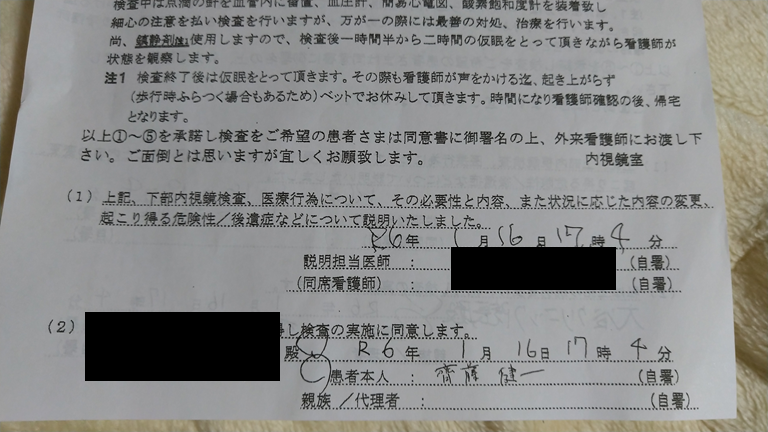 検査中は点滴の針を血管内に留置、血圧計、簡易心電図、酸素飽和度計を装着致し
細心の注意を払い検査を行いますが、万が一の際には最善の対処、治療を行います。
尚、鎮静剤注1使用しますので、検査後一時間半から二時間の仮眠をとって頂きながら看護師が
状態を観察します。
注1 検査終了後は仮眠をとって頂きます。その際も看護師が声をかける迄、起き上がらず
(歩行時ふらつく場合もあるため)ベットでお休みして頂きます。時間になり看護師確認の後、帰宅
となります。
以上①～⑤を承諾し検査をご希望の患者さまは同意書に御署名の上、外来看護師にお渡し下
さい。ご面倒とは思いますが宜しくお願致します。 内視鏡室
(1) 上記、下部内視鏡検査、医療行為について、その必要性と内容、また状況に応じた内容の変更、
起こり得る危険性/後遺症などについて説明いたしました。
R6年 1月16日17時4分
説明担当医師 : (自署)
(同席看護師) : (自署)
(2) し検査の実施に同意します。
殿 R6年 1月16日17時4分
患者本人 : 齋藤 健一 (自署)
親族/代理者 : (自署)